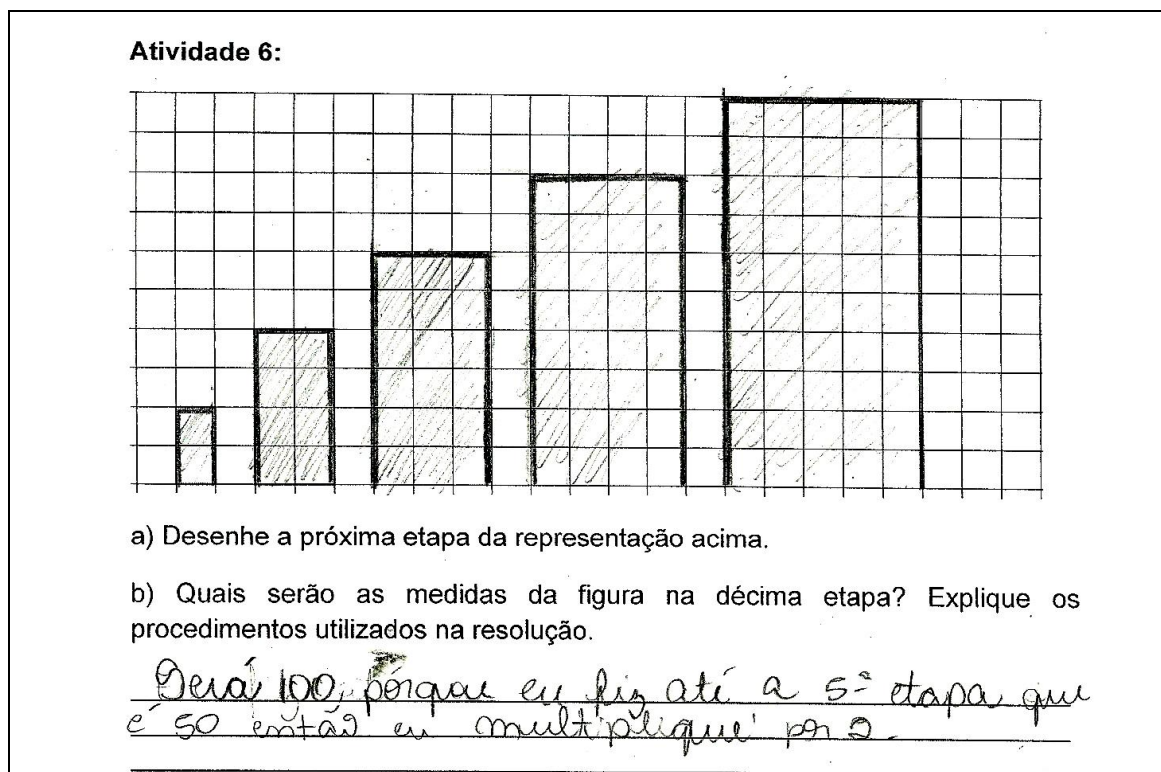 Atividade 6:
a) Desenhe a próxima etapa da representação acima.
b) Quais serão as medidas da figura na décima etapa? Explique os
procedimentos utilizados na resolução.
Será 100, porque eu fiz até a 5ª etapa que
é 50 então eu multipliquei por 2.